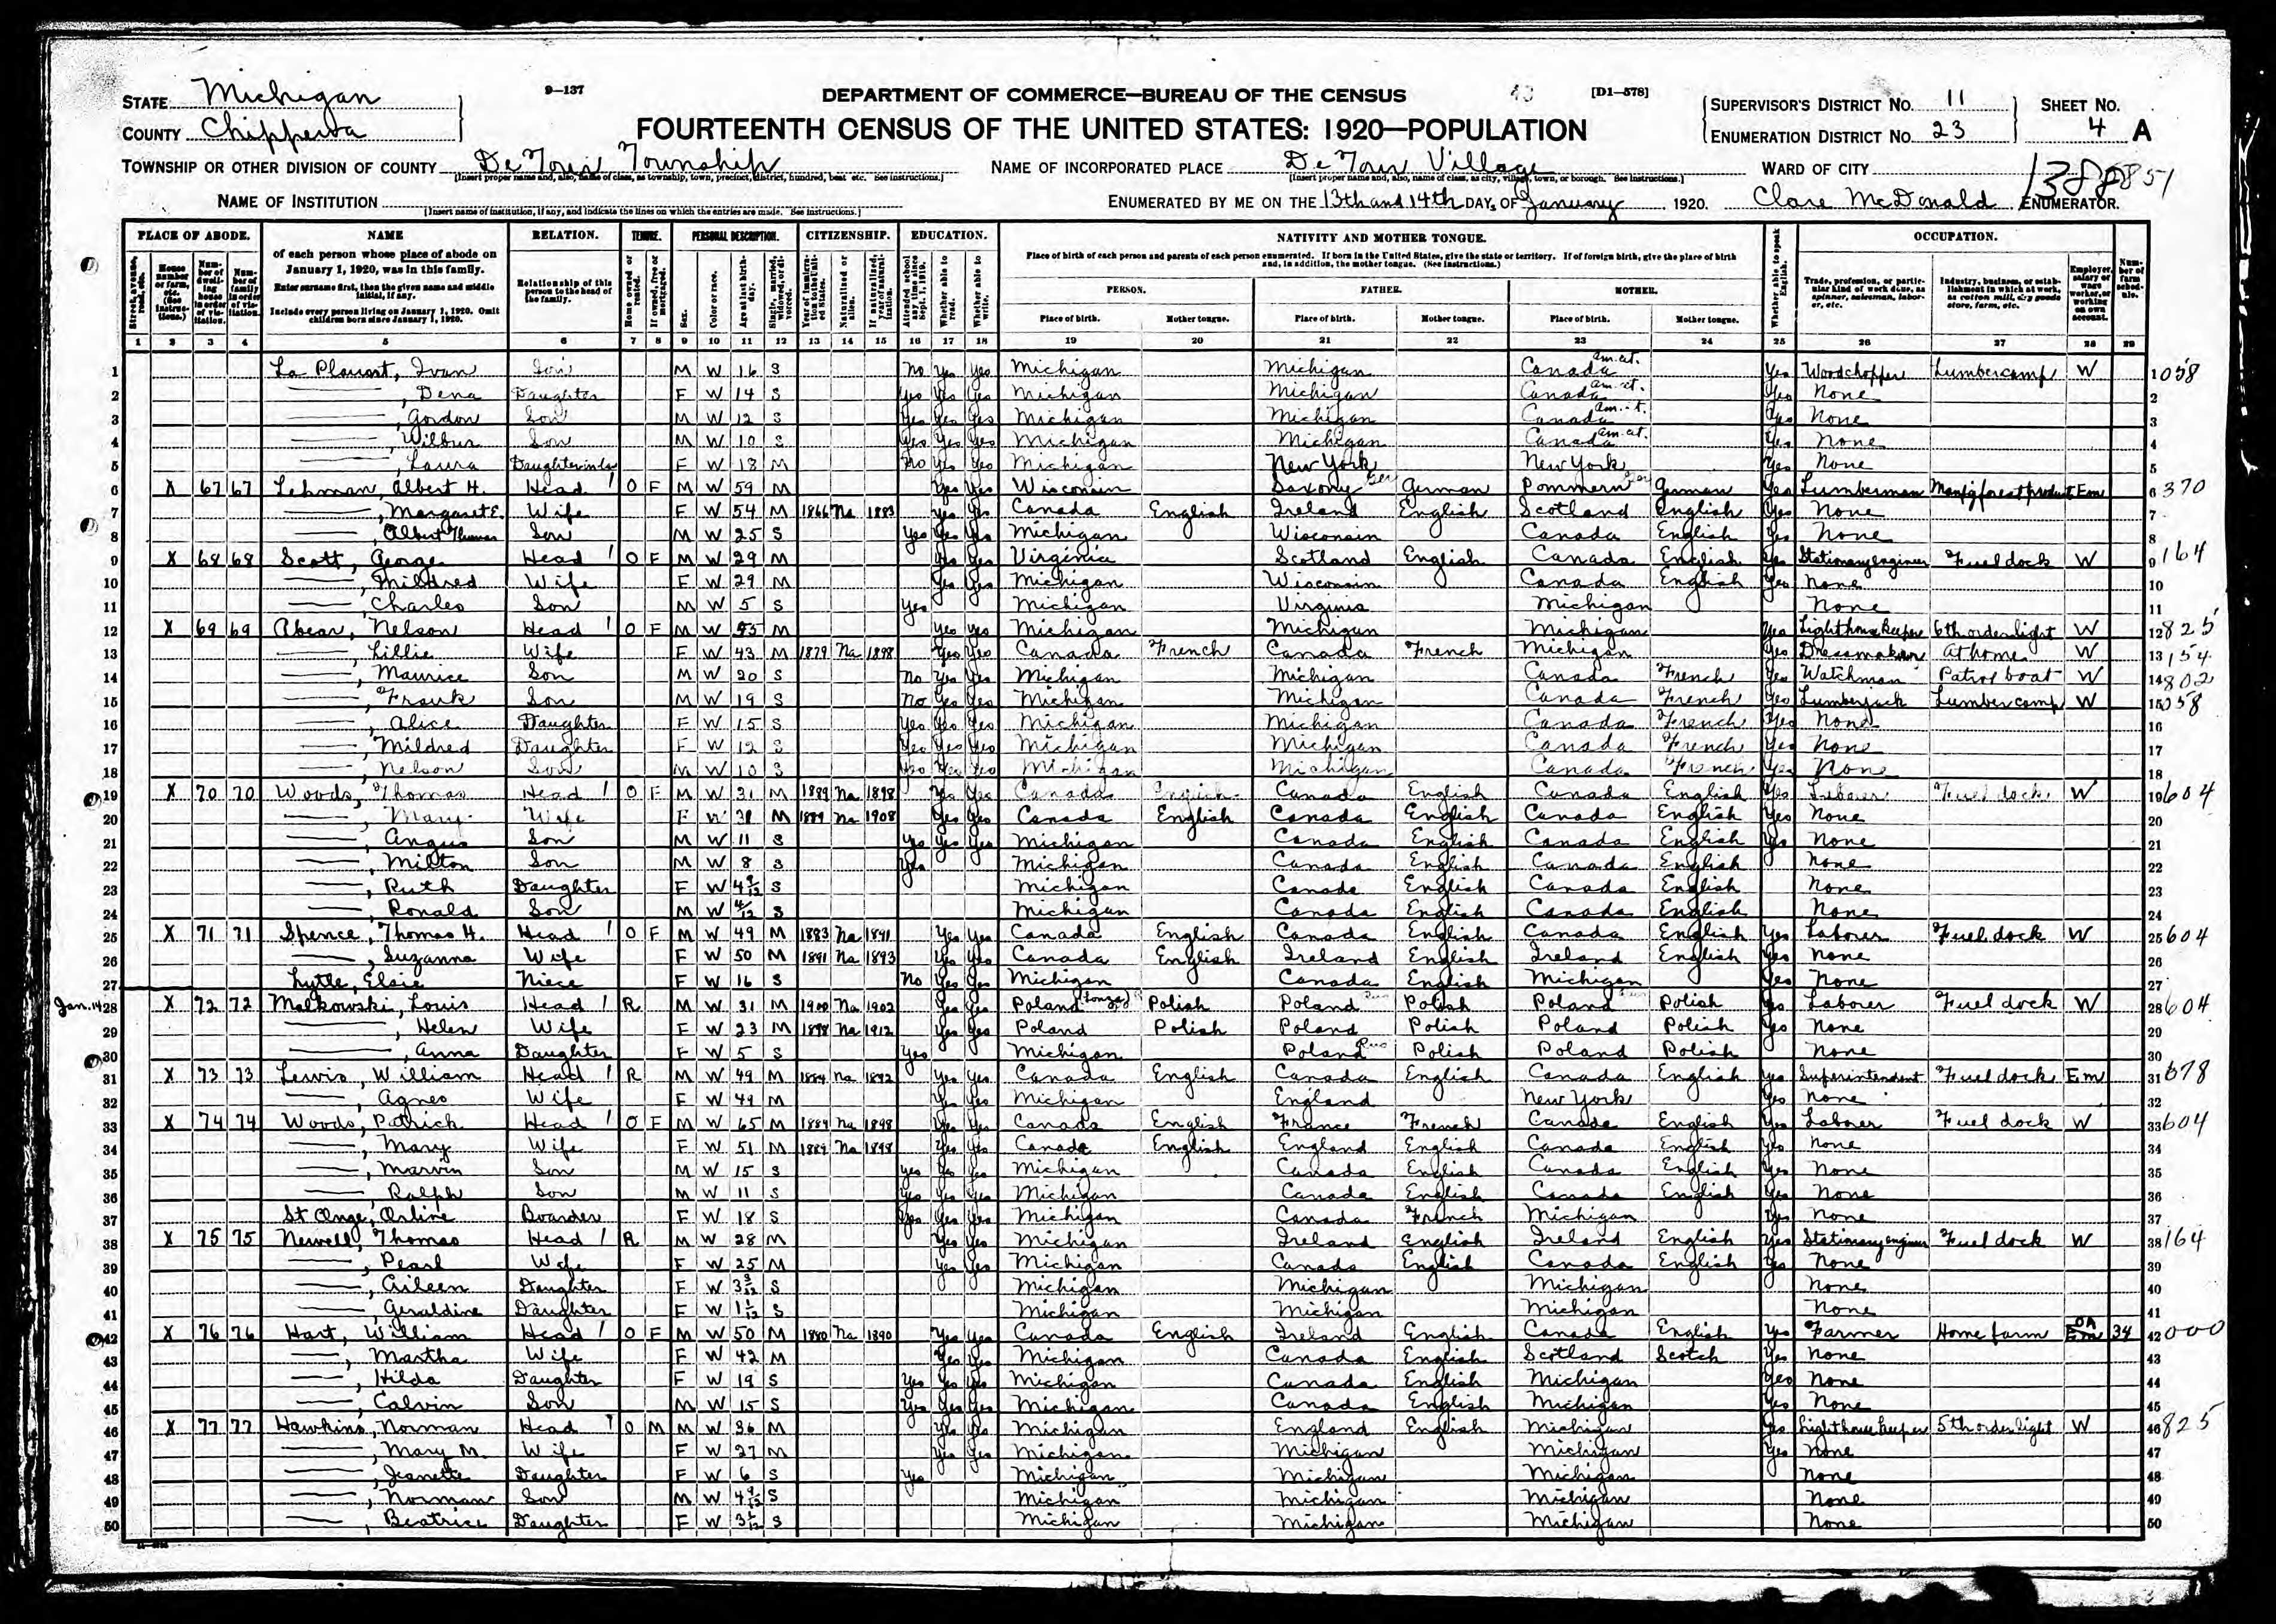 9—137
DEPARTMENT OF COMMERCE—BUREAU OF THE CENSUS
[D1—578]
FOURTEENTH CENSUS OF THE UNITED STATES: 1920—POPULATION
STATE Michigan
COUNTY Chippewa
SUPERVISOR'S DISTRICT No. 11
ENUMERATION DISTRICT No. 23
SHEET No. 4 A
TOWNSHIP OR OTHER DIVISION OF COUNTY De Tour Township
NAME OF INCORPORATED PLACE De Tour Village
WARD OF CITY
NAME OF INSTITUTION
ENUMERATED BY ME ON THE 13th and 14th DAYS OF January 1920. Clare McDonald ENUMERATOR.
PLACE OF ABODE. NAME RELATION. TENURE. PERSONAL DESCRIPTION. CITIZENSHIP. EDUCATION. NATIVITY AND MOTHER TONGUE. OCCUPATION.
1 2 3 4 5 6 7 8 9 10 11 12 13 14 15 16 17 18 19 20 21 22 23 24 25 26 27 28 29
1 La Plaunt, Ivan Son M W 16 S No Yes Yes Michigan Michigan Canada Yes Woodchopper Lumbercamp W 1 058
2 , Dena Daughter F W 14 S Yes Yes Yes Michigan Michigan Canada Yes None 2
3 , Gordon Son M W 12 S Yes Yes Yes Michigan Michigan Canada Yes None 3
4 , Wilbur Son M W 10 S Yes Yes Yes Michigan Michigan Canada Yes None 4
5 , Laura Daughterinlaw F W 18 M No Yes Yes Michigan New York New York Yes None 5
6 X 67 67 Lehman, Albert H. Head O F M W 59 M Yes Yes Wisconsin Saxony German Pommern German Yes Lumberman Manfg forest product Em 6 370
7 , Margaret E. Wife F W 54 M 1866 Na 1883 Yes Yes Canada English Ireland English Scotland English Yes None 7
8 , Albert Thomas Son M W 25 S Yes Yes Yes Michigan Wisconsin Canada English Yes None 8
9 X 68 68 Scott, George Head O F M W 29 M Yes Yes Virginia Scotland English Canada English Yes Stationary engineer Fuel dock W 9 164
10 , Mildred Wife F W 29 M Yes Yes Michigan Wisconsin Canada English Yes None 10
11 , Charles Son M W 5 S Yes Michigan Virginia Michigan None 11
12 X 69 69 Abear, Nelson Head O F M W 55 M Yes Yes Michigan Michigan Michigan Yes Lighthouse keeper 6th order light W 12 825
13 , Lillie Wife F W 43 M 1879 Na 1898 Yes Yes Canada French Canada French Michigan Yes Dressmaker At home W 13 154
14 , Maurice Son M W 20 S No Yes Yes Michigan Michigan Canada French Yes Watchman Patrol boat W 14 802
15 , Frank Son M W 19 S No Yes Yes Michigan Michigan Canada French Yes Lumberjack Lumber camp W 15 058
16 , Alice Daughter F W 15 S Yes Yes Yes Michigan Michigan Canada French Yes None 16
17 , Mildred Daughter F W 12 S Yes Yes Yes Michigan Michigan Canada French Yes None 17
18 , Nelson Son M W 10 S Yes Yes Yes Michigan Michigan Canada French Yes None 18
19 X 70 70 Woods, Thomas Head O F M W 31 M 1889 Na 1898 Yes Yes Canada English Canada English Canada English Yes Laborer Fuel dock W 19 604
20 , Mary Wife F W 31 M 1889 Na 1908 Yes Yes Canada English Canada English Canada English Yes None 20
21 , Angus Son M W 11 S Yes Yes Yes Michigan Canada English Canada English Yes None 21
22 , Milton Son M W 8 S Yes Michigan Canada English Canada English None 22
23 , Ruth Daughter F W 4 9/12 S Michigan Canada English Canada English None 23
24 , Ronald Son M W 4/12 S Michigan Canada English Canada English None 24
25 X 71 71 Spence, Thomas H. Head O F M W 49 M 1883 Na 1891 Yes Yes Canada English Canada English Canada English Yes Laborer Fuel dock W 25 604
26 , Suzanna Wife F W 50 M 1891 Na 1893 Yes Yes Canada English Ireland English Ireland English Yes None 26
27 Lytle, Elsie Niece F W 16 S No Yes Yes Michigan Canada English Michigan Yes None 27
Jan. 14 28 X 72 72 Malkowski, Louis Head R M W 31 M 1900 Na 1902 Yes Yes Poland Polish Poland Polish Poland Polish Yes Laborer Fuel dock W 28 604
29 , Helen Wife F W 23 M 1898 Na 1912 Yes Yes Poland Polish Poland Polish Poland Polish Yes None 29
30 , Anna Daughter F W 5 S Yes Michigan Poland Polish Poland Polish None 30
31 X 73 73 Lewis, William Head R M W 49 M 1884 Na 1892 Yes Yes Canada English Canada English Canada English Yes Superintendent Fuel dock Em 31 678
32 , Agnes Wife F W 49 M Yes Yes Michigan England New York Yes None 32
33 X 74 74 Woods, Patrick Head O F M W 65 M 1889 Na 1898 Yes Yes Canada English France French Canada English Yes Laborer Fuel dock W 33 604
34 , Mary Wife F W 51 M 1889 Na 1898 Yes Yes Canada English England English Canada English Yes None 34
35 , Marvin Son M W 15 S Yes Yes Yes Michigan Canada English Canada English Yes None 35
36 , Ralph Son M W 11 S Yes Yes Yes Michigan Canada English Canada English Yes None 36
37 St Ange, Orline Boarder F W 18 S Yes Yes Yes Michigan Canada French Michigan Yes None 37
38 X 75 75 Newell, Thomas Head R M W 28 M Yes Yes Michigan Ireland English Ireland English Yes Stationary engineer Fuel dock W 38 164
39 , Pearl Wife F W 25 M Yes Yes Michigan Canada English Canada English Yes None 39
40 , Aileen Daughter F W 3 3/12 S Michigan Michigan Michigan None 40
41 , Geraldine Daughter F W 1 1/12 S Michigan Michigan Michigan None 41
42 X 76 76 Hart, William Head O F M W 50 M 1880 Na 1890 Yes Yes Canada English Ireland English Canada English Yes Farmer Home farm OA 34 42 000
43 , Martha Wife F W 42 M Yes Yes Michigan Canada English Scotland Scotch Yes None 43
44 , Hilda Daughter F W 19 S Yes Yes Yes Michigan Canada English Michigan Yes None 44
45 , Calvin Son M W 15 S Yes Yes Yes Michigan Canada English Michigan Yes None 45
46 X 77 77 Hawkins, Norman Head O M M W 36 M Yes Yes Michigan England English Michigan Yes Lighthouse keeper 5th order light W 46 825
47 , Mary M. Wife F W 27 M Yes Yes Michigan Michigan Michigan Yes None 47
48 , Jeanette Daughter F W 6 S Yes Michigan Michigan Michigan None 48
49 , Norman Son M W 4 9/12 S Michigan Michigan Michigan None 49
50 , Beatrice Daughter F W 3 1/12 S Michigan Michigan Michigan None 50